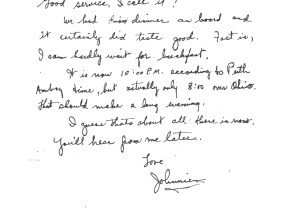 Good service, I call it!
We had dinner on board and
it certainly did taste good. Fact is,
I can hardly wait for breakfast.
It is now 10:00 P.M. according to Perth
Amboy time, but actually only 8:00 over Ohio.
That should make a long evening.
I guess thats about all there is now.
You'll hear from me later.
Love
Johnnie